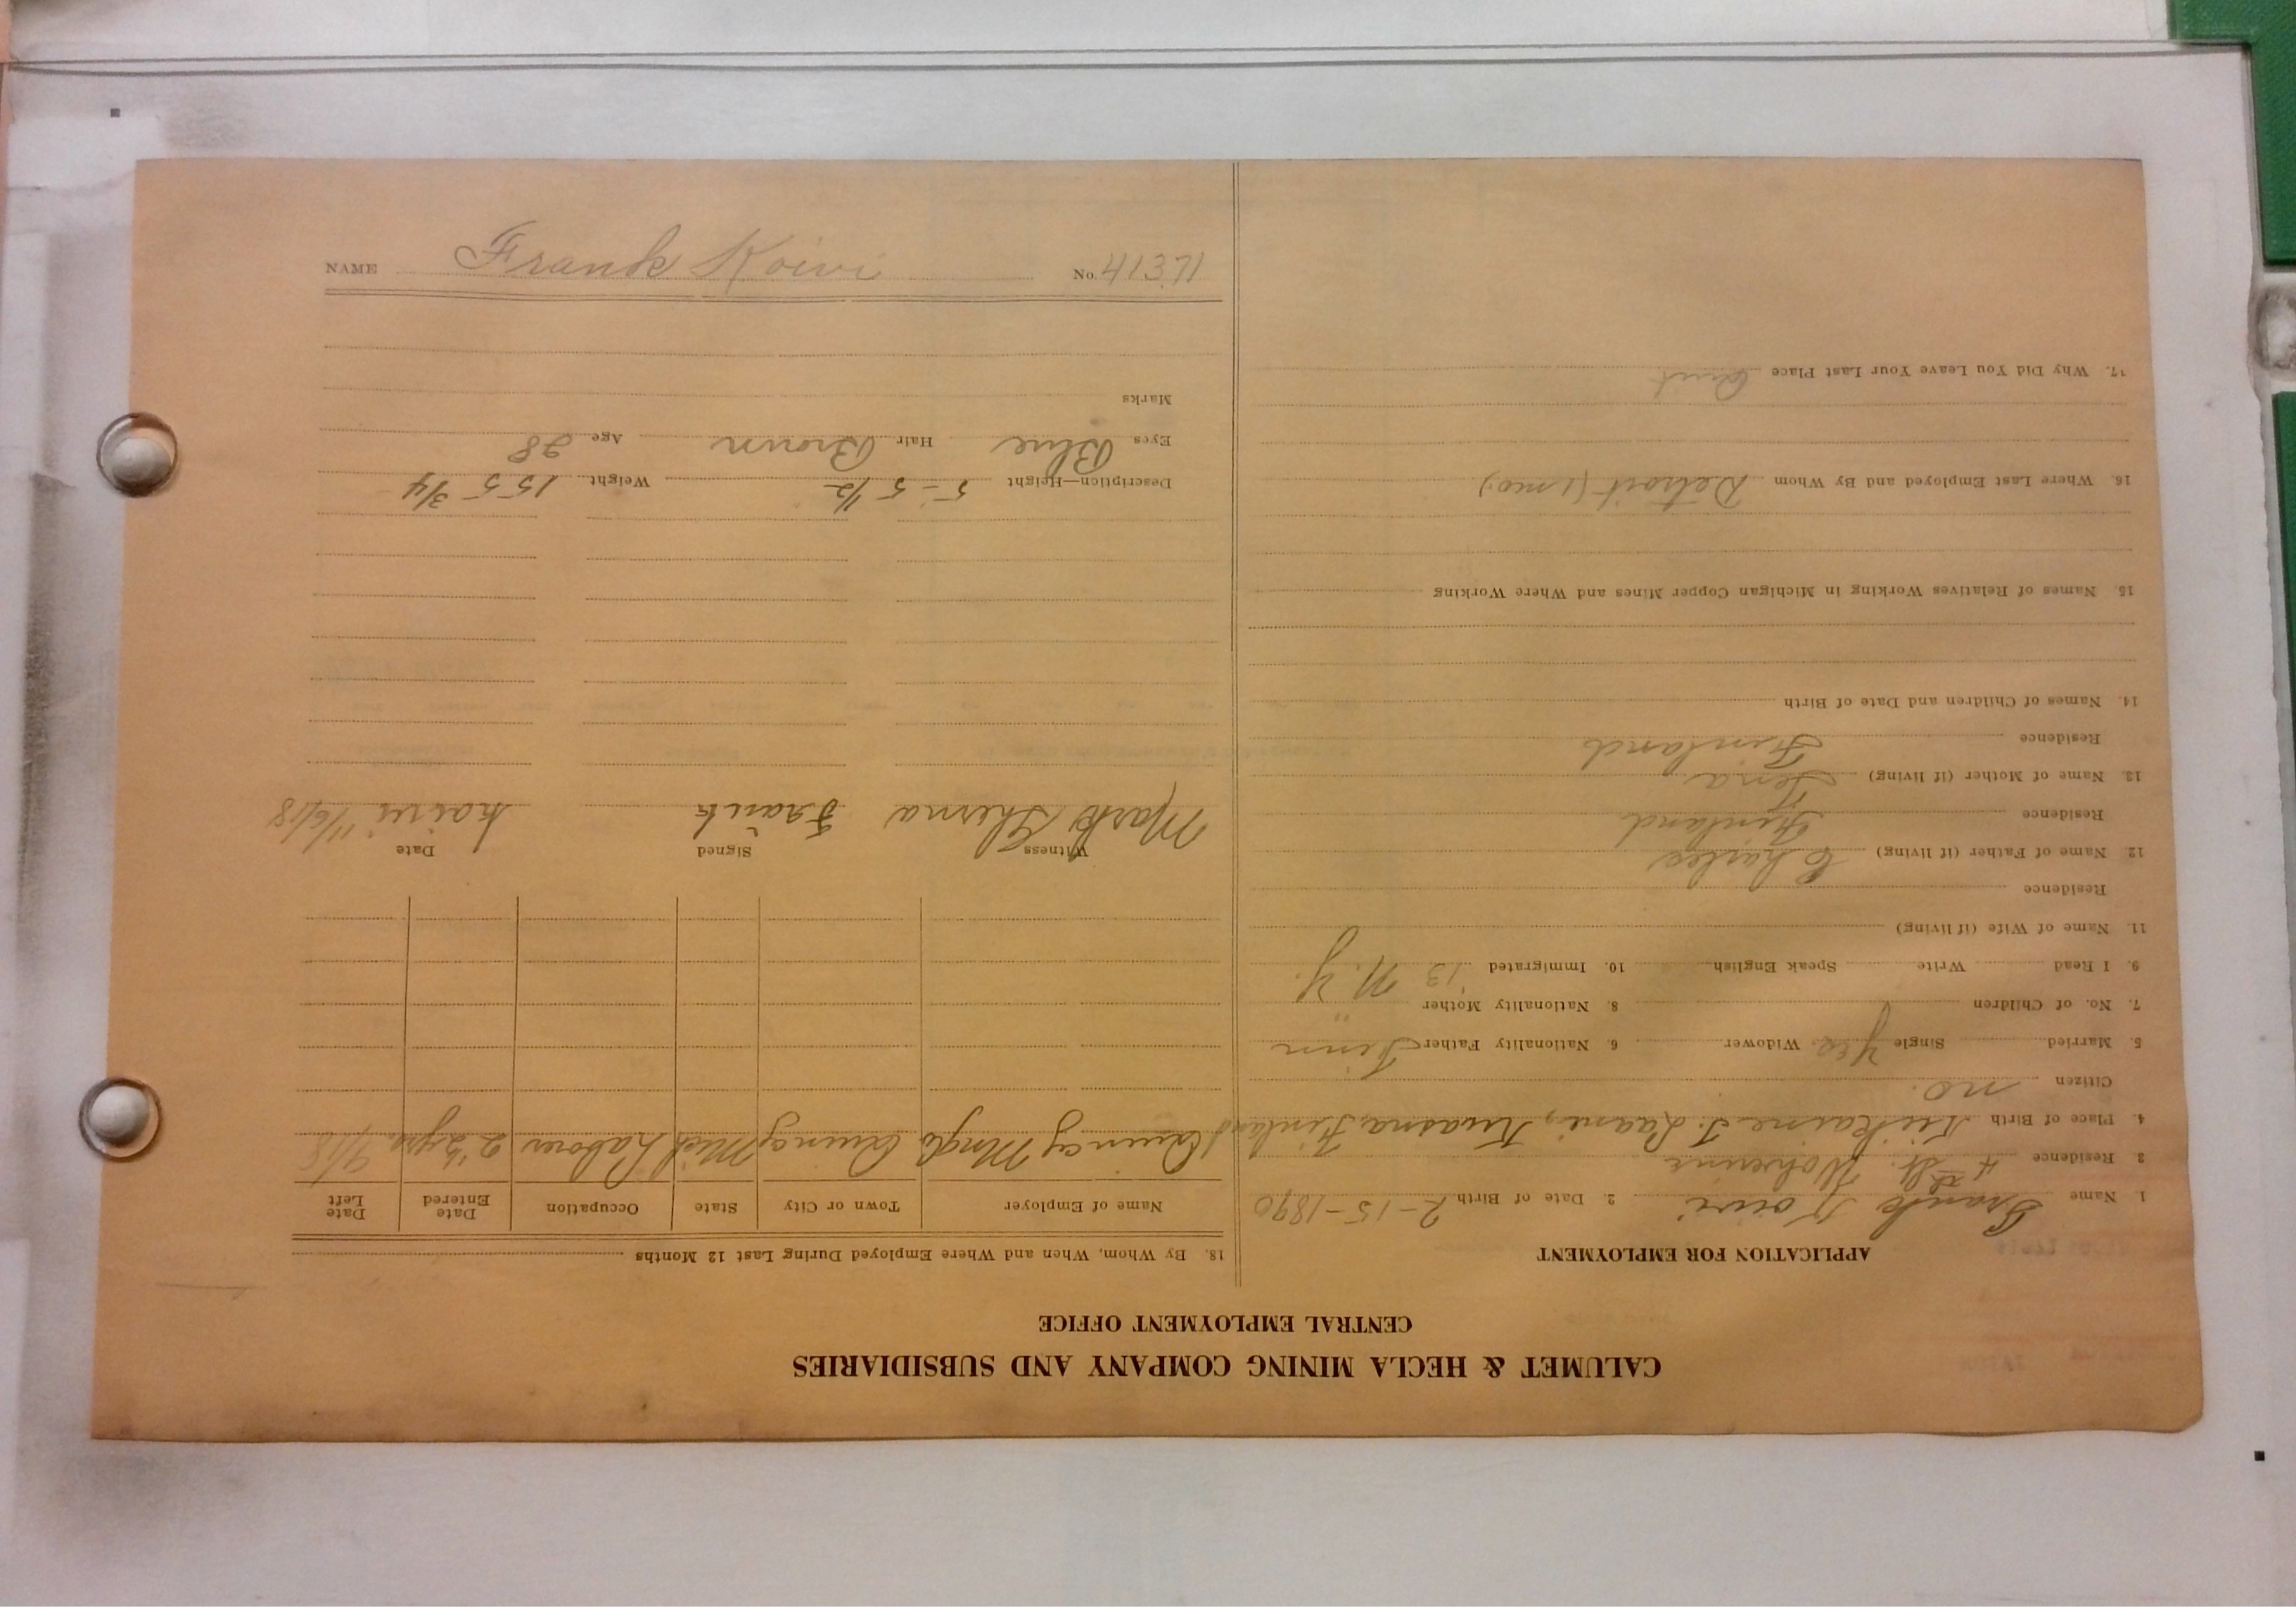 CALUMET & HECLA MINING COMPANY AND SUBSIDIARIES
CENTRAL EMPLOYMENT OFFICE
APPLICATION FOR EMPLOYMENT
1. Name Frank Koivi 2. Date of Birth 2-15-1890
3. Residence 4th St. Wolverine
4. Place of Birth Finland
Citizen no.
5. Married Single Yes. Widower 6. Nationality Father Finn
7. No. of Children 8. Nationality Mother "
9. I Read Write Speak English 10. Immigrated '13 N. Y.
11. Name of Wife (if living)
Residence
12. Name of Father (if living) Charles
Residence Finland
13. Name of Mother (if living)
Residence Finland
14. Names of Children and Date of Birth
15. Names of Relatives Working in Michigan Copper Mines and Where Working
16. Where Last Employed and By Whom Detroit (1 mo.)
17. Why Did You Leave Your Last Place Quit
18. By Whom, When and Where Employed During Last 12 Months
Name of Employer Town or City State Occupation Date Entered Date Left
Quincy Mng Co Quincy Mich Laborer 2 1/2 yrs. 9/18
Witness Signed Date
Mark Frank Koivi 11/6/18
Description—Height 5-5 1/2 Weight 155 3/4
Eyes Blue Hair Brown Age 28
Marks
NAME Frank Koivi No. 41371